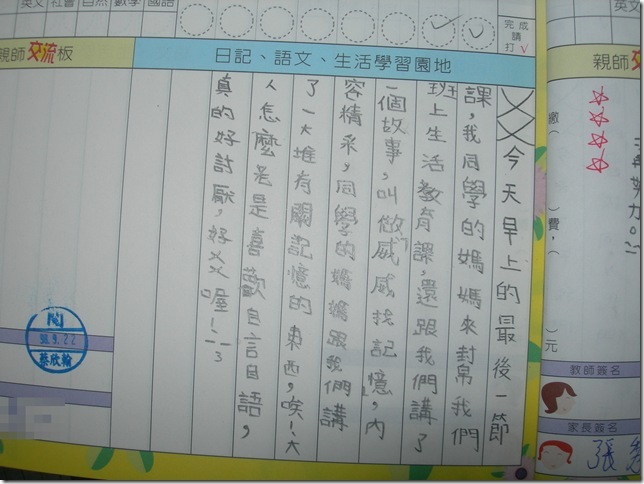 英文 社會 自然 數學 國語
完成請打√
親師交流板
日記、語文、生活學習園地
今天早上的最後一節
課，我同學的媽媽來幫我們
班上生活教育課，還跟我們講了
一個故事，叫做威威找記憶，內
容精采，同學的媽媽跟我們講
了一大堆有關記憶的東西，唉！大
人怎麼老是喜歡自言自語，
真的好討厭，好ㄨㄨ喔！
98.9.22
蔡欣翰
英文
親師交
繳（ ）費，（ ）元
教師簽名
家長簽名
張